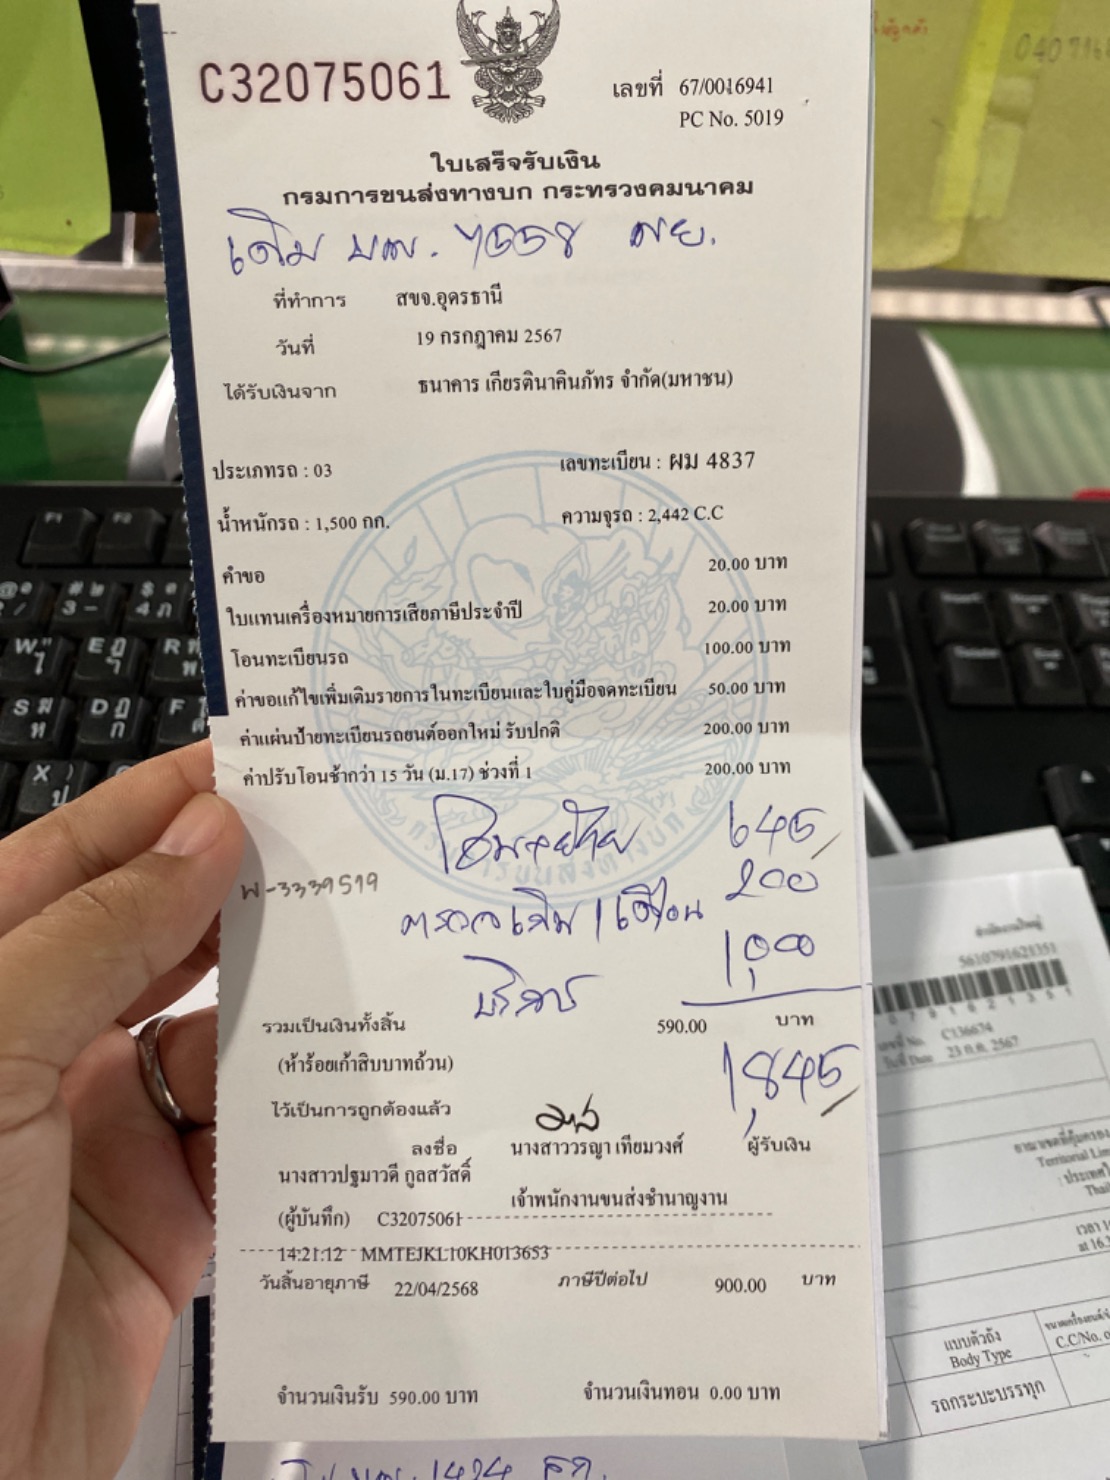 C32075061
เลขที่ 67/0016941
PC No. 5019
ใบเสร็จรับเงิน
กรมการขนส่งทางบก กระทรวงคมนาคม
เดิม
ที่ทำการ สขจ.อุดรธานี
วันที่ 19 กรกฎาคม 2567
ได้รับเงินจาก ธนาคาร เกียรตินาคินภัทร จำกัด(มหาชน)
ประเภทรถ : 03 เลขทะเบียน : ผม 4837
น้ำหนักรถ : 1,500 กก. ความจุรถ : 2,442 C.C
คำขอ 20.00 บาท
ใบแทนเครื่องหมายการเสียภาษีประจำปี 20.00 บาท
โอนทะเบียนรถ 100.00 บาท
ค่าขอแก้ไขเพิ่มเติมรายการในทะเบียนและใบคู่มือจดทะเบียน 50.00 บาท
ค่าแผ่นป้ายทะเบียนรถยนต์ออกใหม่ รับปกติ 200.00 บาท
ค่าปรับโอนช้ากว่า 15 วัน (ม.17) ช่วงที่ 1 200.00 บาท
645
W-3339519
200
บริการ
รวมเป็นเงินทั้งสิ้น 590.00 บาท
(ห้าร้อยเก้าสิบบาทถ้วน)
1,845
ไว้เป็นการถูกต้องแล้ว
ลงชื่อ นางสาววรญา เทียมวงศ์ ผู้รับเงิน
นางสาวปฐมาวดี กูลสวัสดิ์
เจ้าพนักงานขนส่งชำนาญงาน
(ผู้บันทึก) C32075061
14:21:12 MMTEJKL10KH013653
วันสิ้นอายุภาษี 22/04/2568 ภาษีปีต่อไป 900.00 บาท
จำนวนเงินรับ 590.00 บาท จำนวนเงินทอน 0.00 บาท
5610791621351
เลขที่ No. C136674
วันที่ Date 23 ก.ค. 2567
แบบตัวถัง
Body Type
C.C/No.
รถกระบะบรรทุก